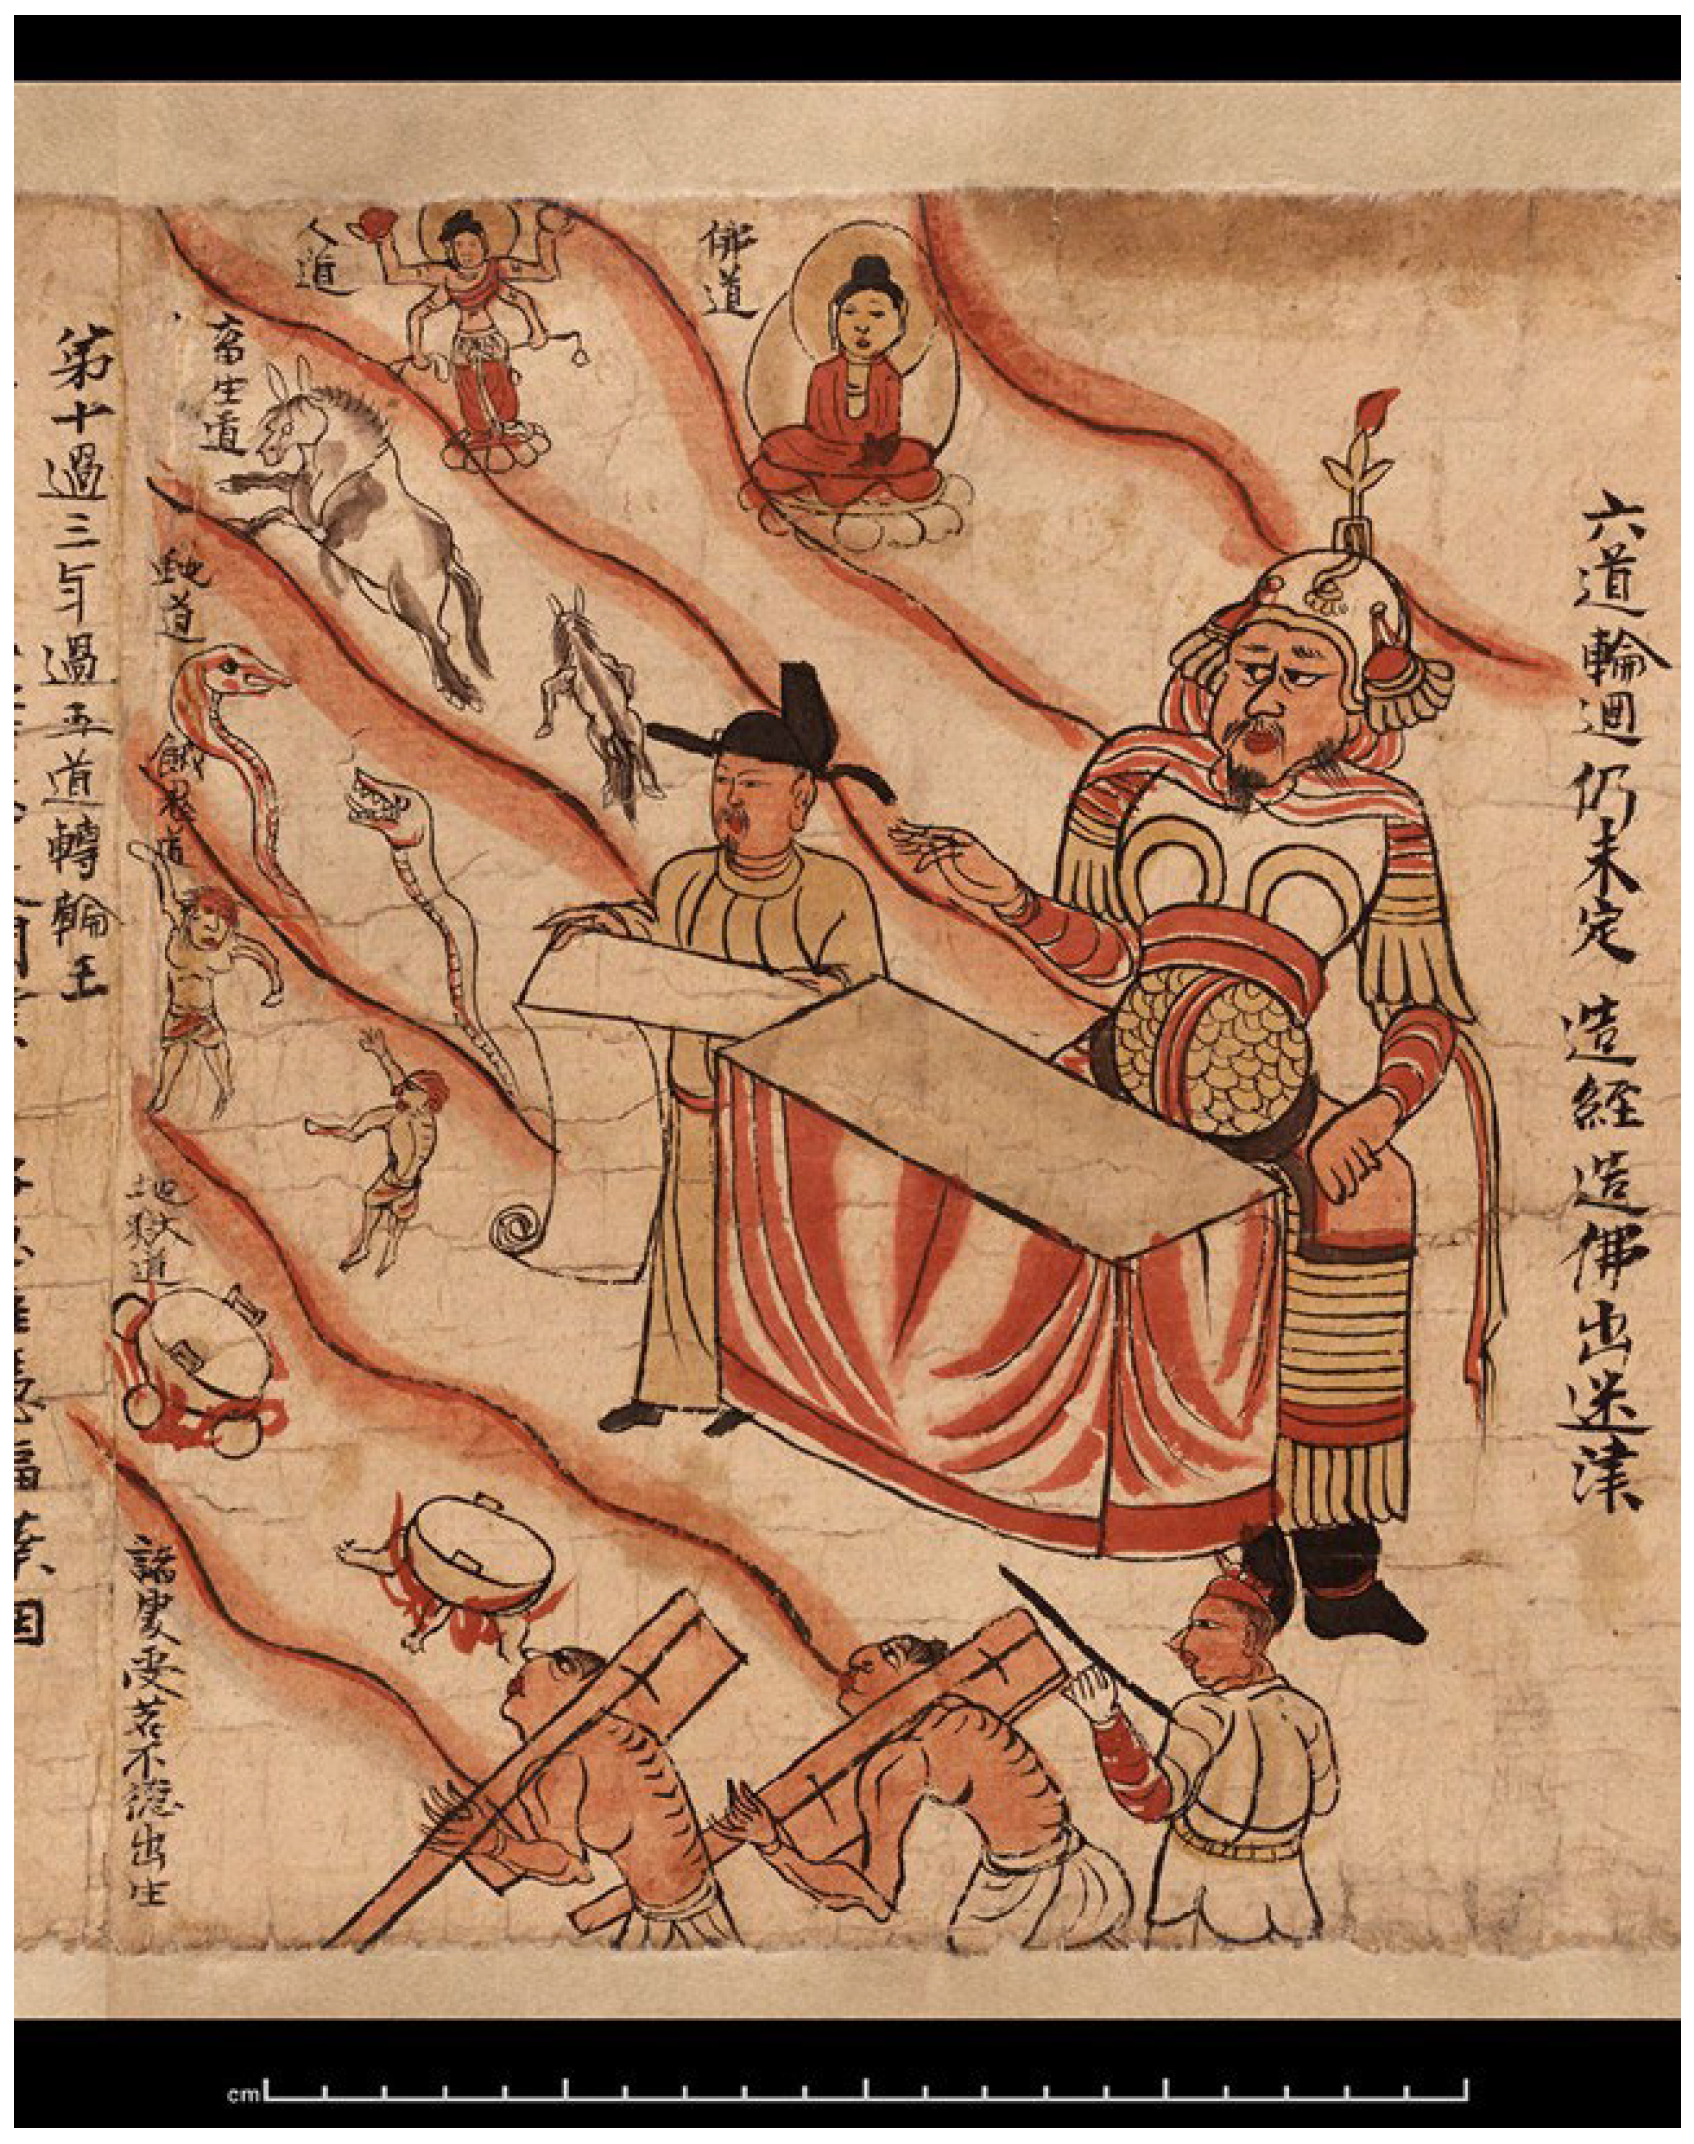 六道輪迴仍未定 造經造佛出迷津
佛道
人道
畜生道
蛇道
餓鬼道
地獄道
諸
受苦不
出生
第十過三年過五道轉輪王
cm